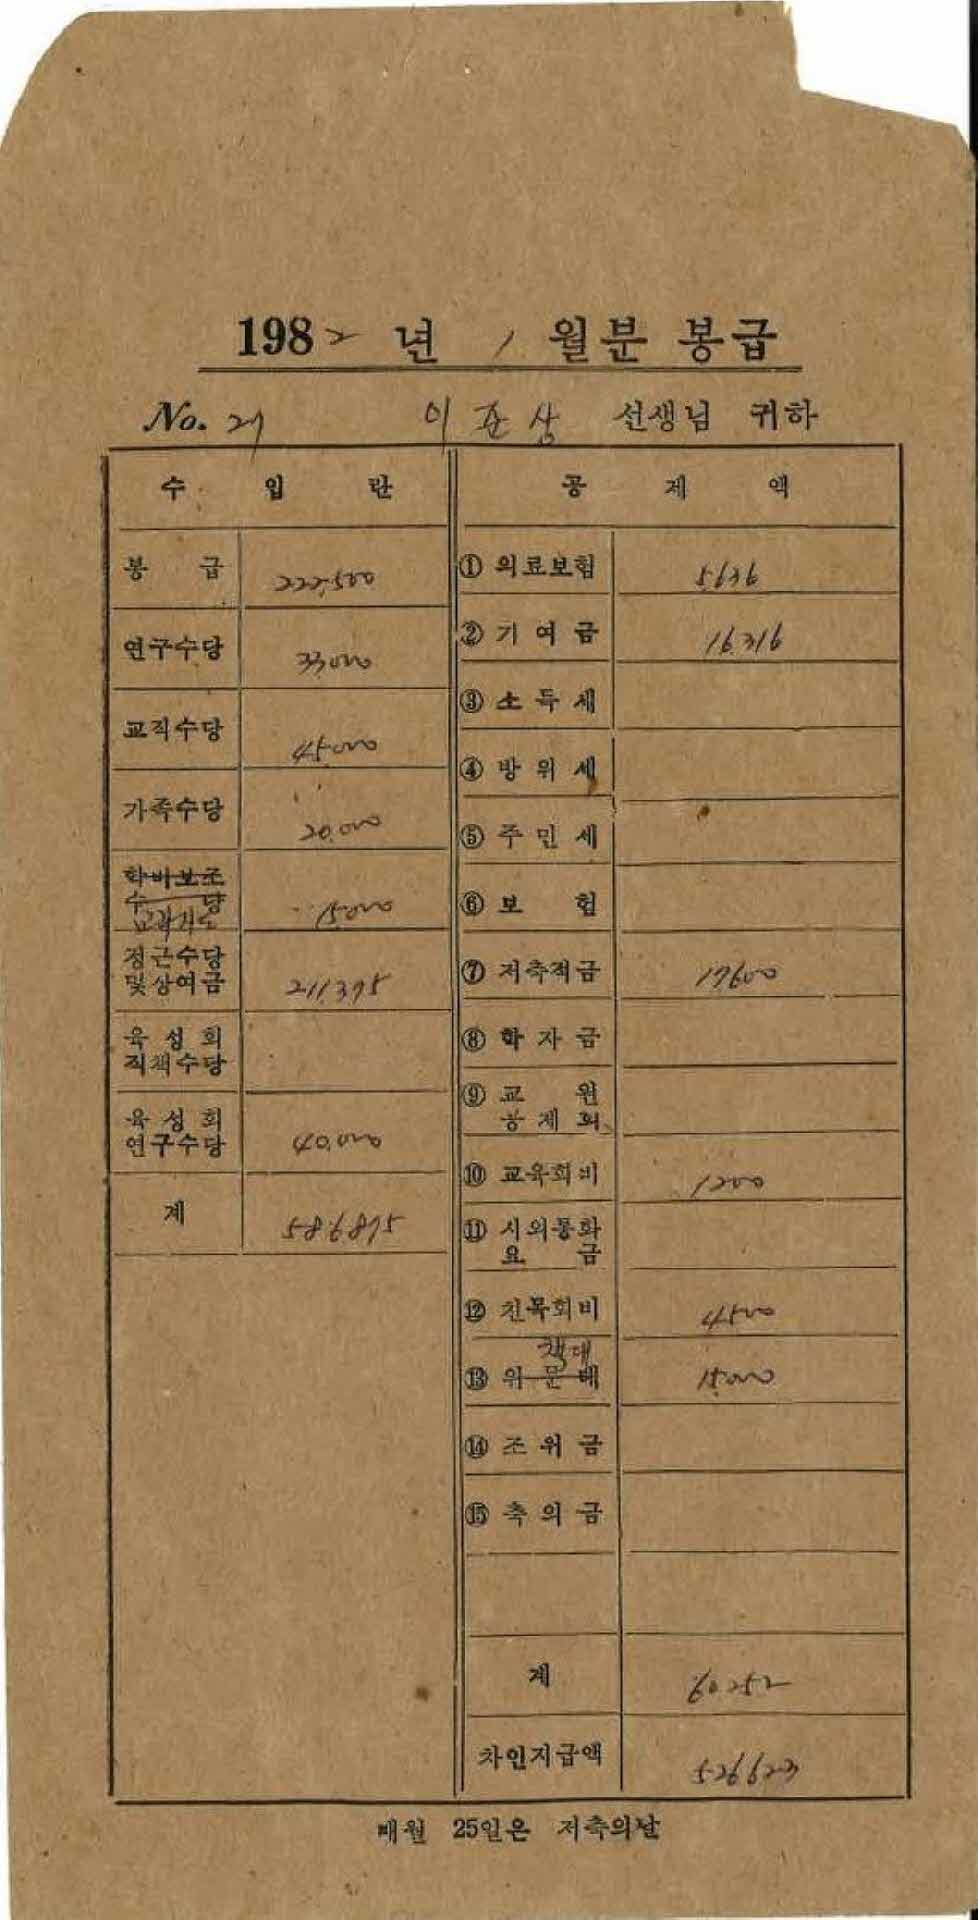 1982 년 1 월분 봉급
No. 이준상 선생님 귀하
수 입 란
봉 급 222,500
연구수당 33,000
교직수당 45,000
가족수당 20,000
학비보조
수 당
교과지도 15,000
정근수당
및상여금 211,375
육 성 회
직책수당
육 성 회
연구수당 40,000
계 586,875
공 제 액
① 의료보험 5,636
② 기 여 금 16,316
③ 소 득 세
④ 방 위 세
⑤ 주 민 세
⑥ 보 험
⑦ 저축적금 17,600
⑧ 학 자 금
⑨ 교 원
공 제 회
⑩ 교육회비 1200
⑪ 시외통화
요 금
⑫ 친목회비 4500
책대
⑬ 위 문 배 15,000
⑭ 조 위 금
⑮ 축 의 금
계 60252
차인지급액 526623
매월 25일은 저축의날